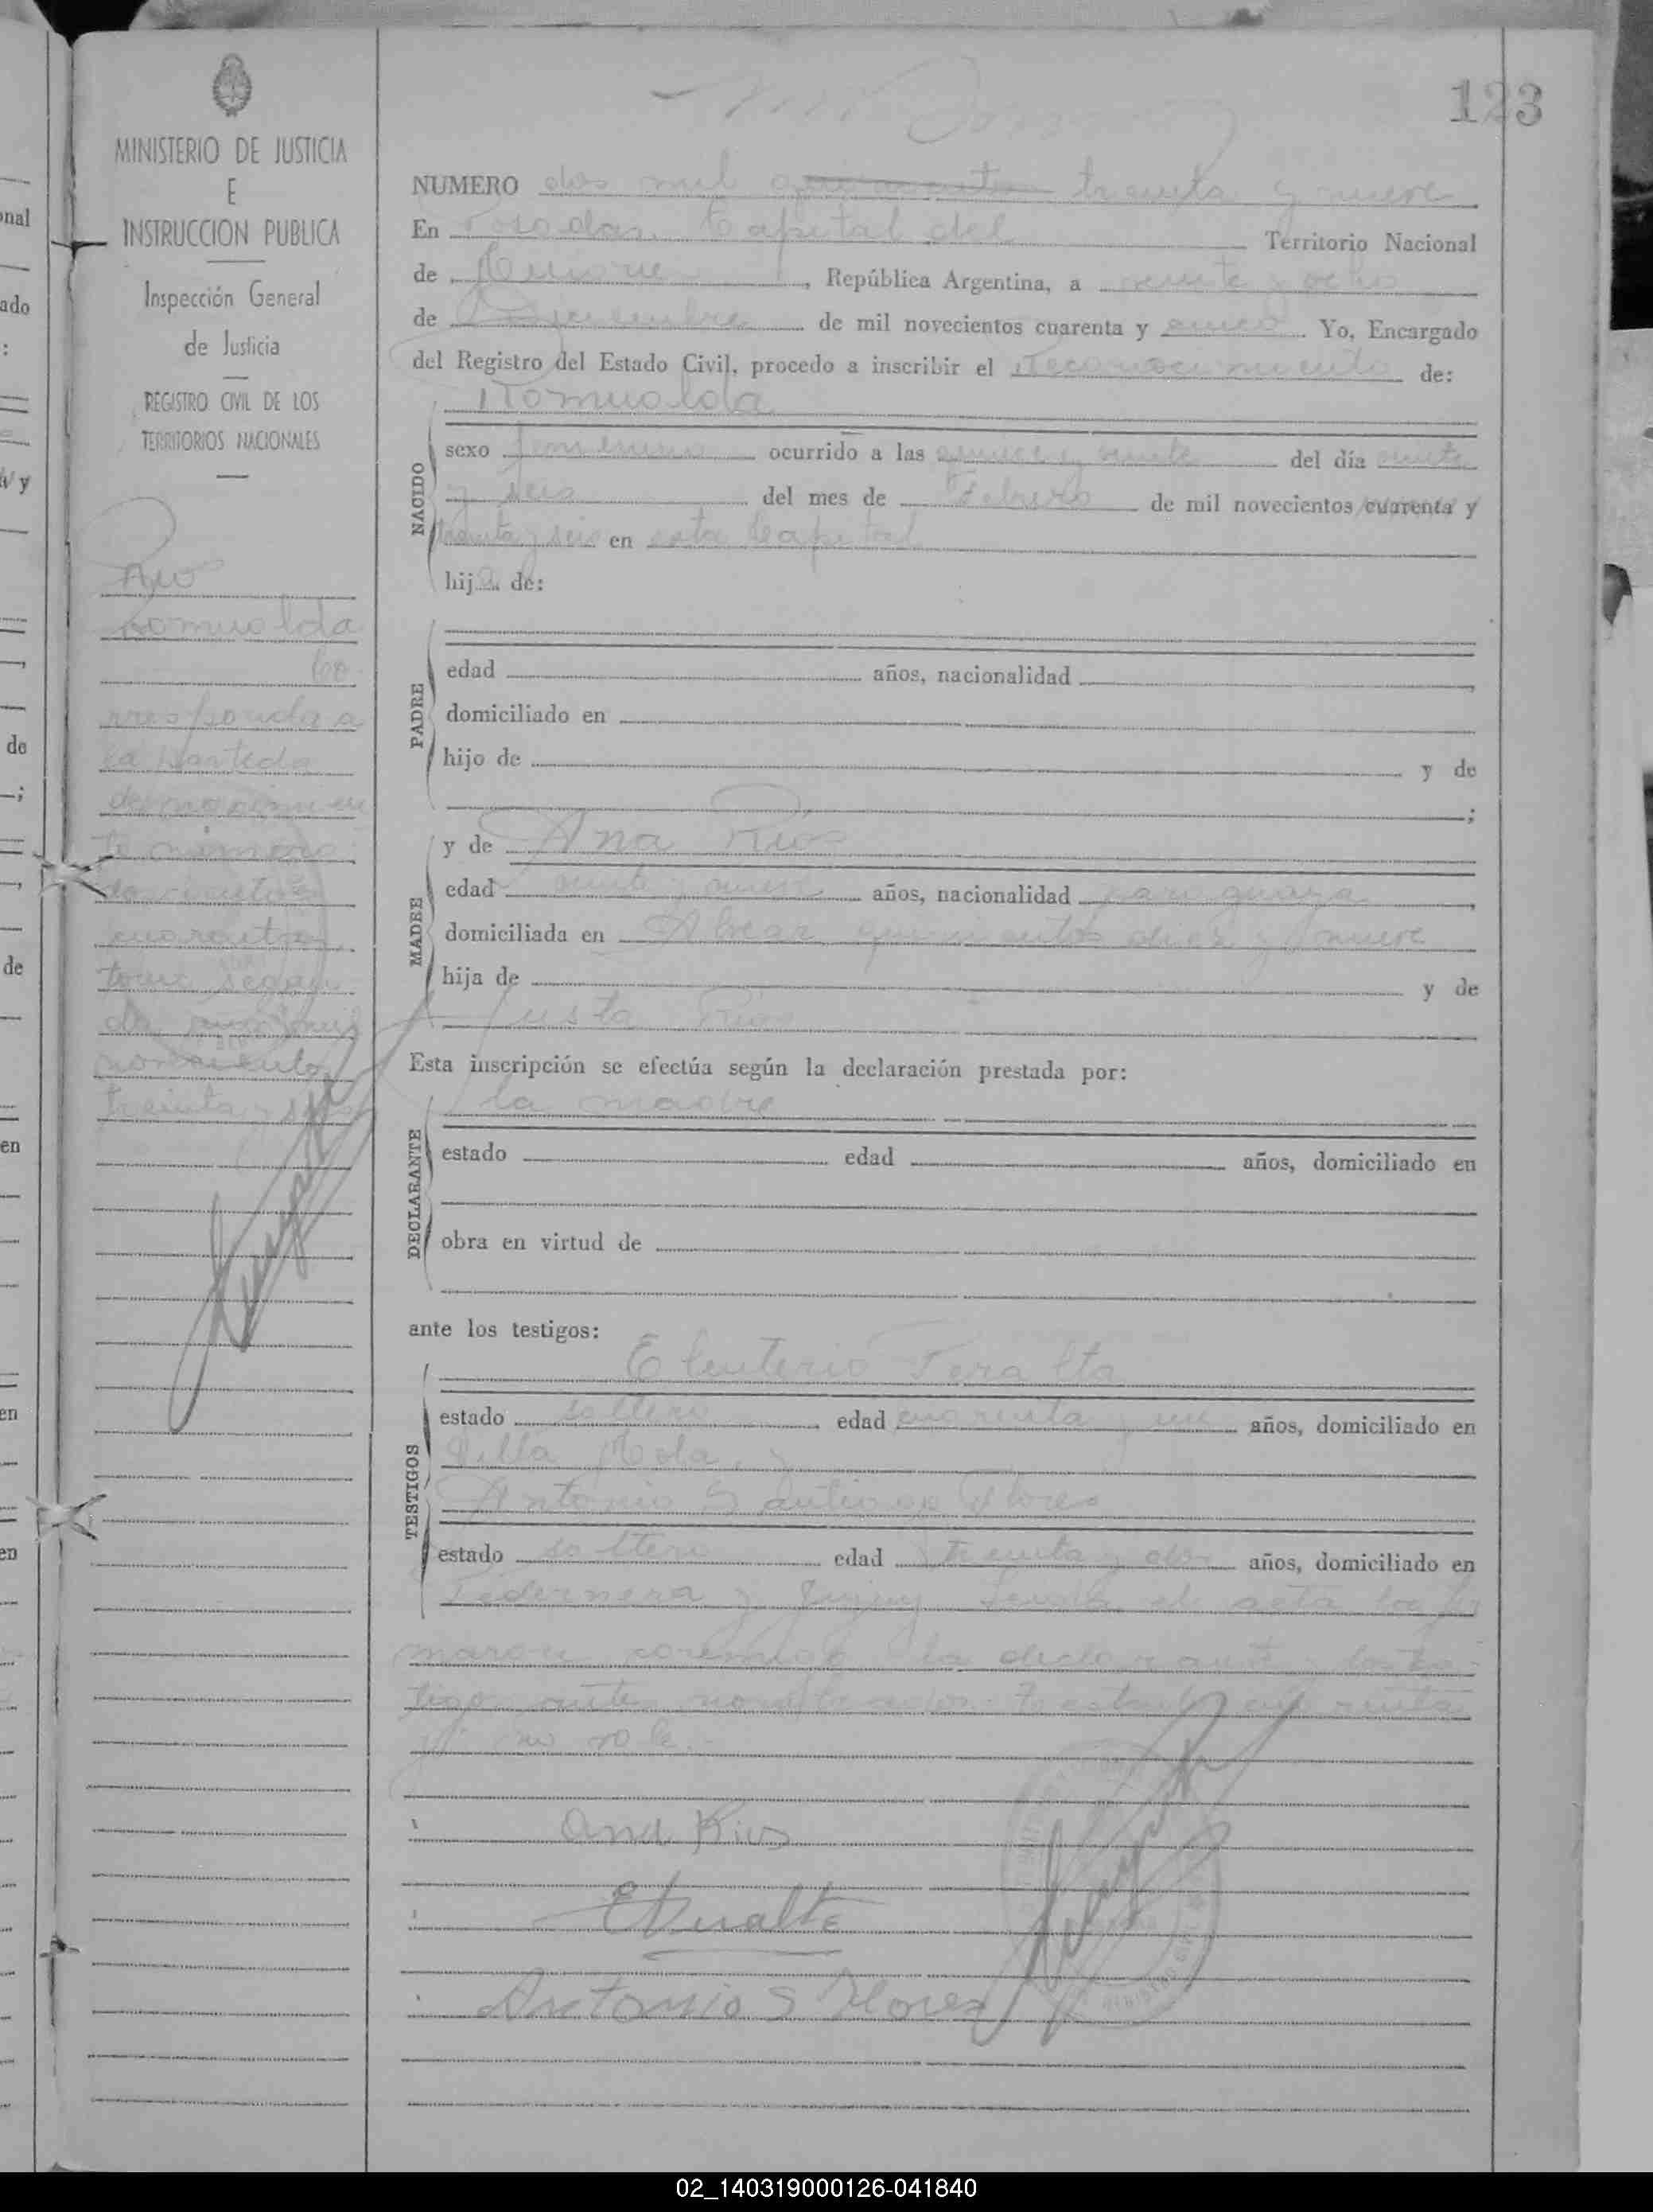 123
MINISTERIO DE JUSTICIA
E
INSTRUCCION PUBLICA
Inspección General
de Justicia
REGISTRO CIVIL DE LOS
TERRITORIOS NACIONALES
Romualda
Co
rresponde a
la Partida
de nacimien
to número
doscientos
cuarenta
novecientos
NUMERO dos mil treinta y nueve
En Posadas, Capital del Territorio Nacional
de Misiones, República Argentina, a veinte y ocho
de Diciembre de mil novecientos cuarenta y cinco. Yo, Encargado
del Registro del Estado Civil, procedo a inscribir el Reconocimiento de:
Romualda
NACIDO
sexo femenino ocurrido a las quince y veinte del día veinte
y seis del mes de Febrero de mil novecientos cuarenta y
treinta y seis en esta Capital
hija de:
PADRE
edad años, nacionalidad
domiciliado en
hijo de y de
;
MADRE
y de Ana Rios
edad veinte y nueve años, nacionalidad paraguaya,
domiciliada en Alvear quinientos diez y nueve
hija de y de
Justa Rios
Esta inscripción se efectúa según la declaración prestada por:
la madre
DECLARANTE
estado edad años, domiciliado en
obra en virtud de
ante los testigos:
TESTIGOS
Eleuterio Peralta
estado soltero edad cuarenta y un años, domiciliado en
Villa Mola,
Antonio S Flores
estado soltero edad treinta y dos años, domiciliado en
Pedernera y Jujuy Leida el acta la fir
maron conmigo la declarante y los tes
tigos ante nombrados. Testado
no vale.
Ana Rios
EPeralta
Antonio S Flores
02_140319000126-041840